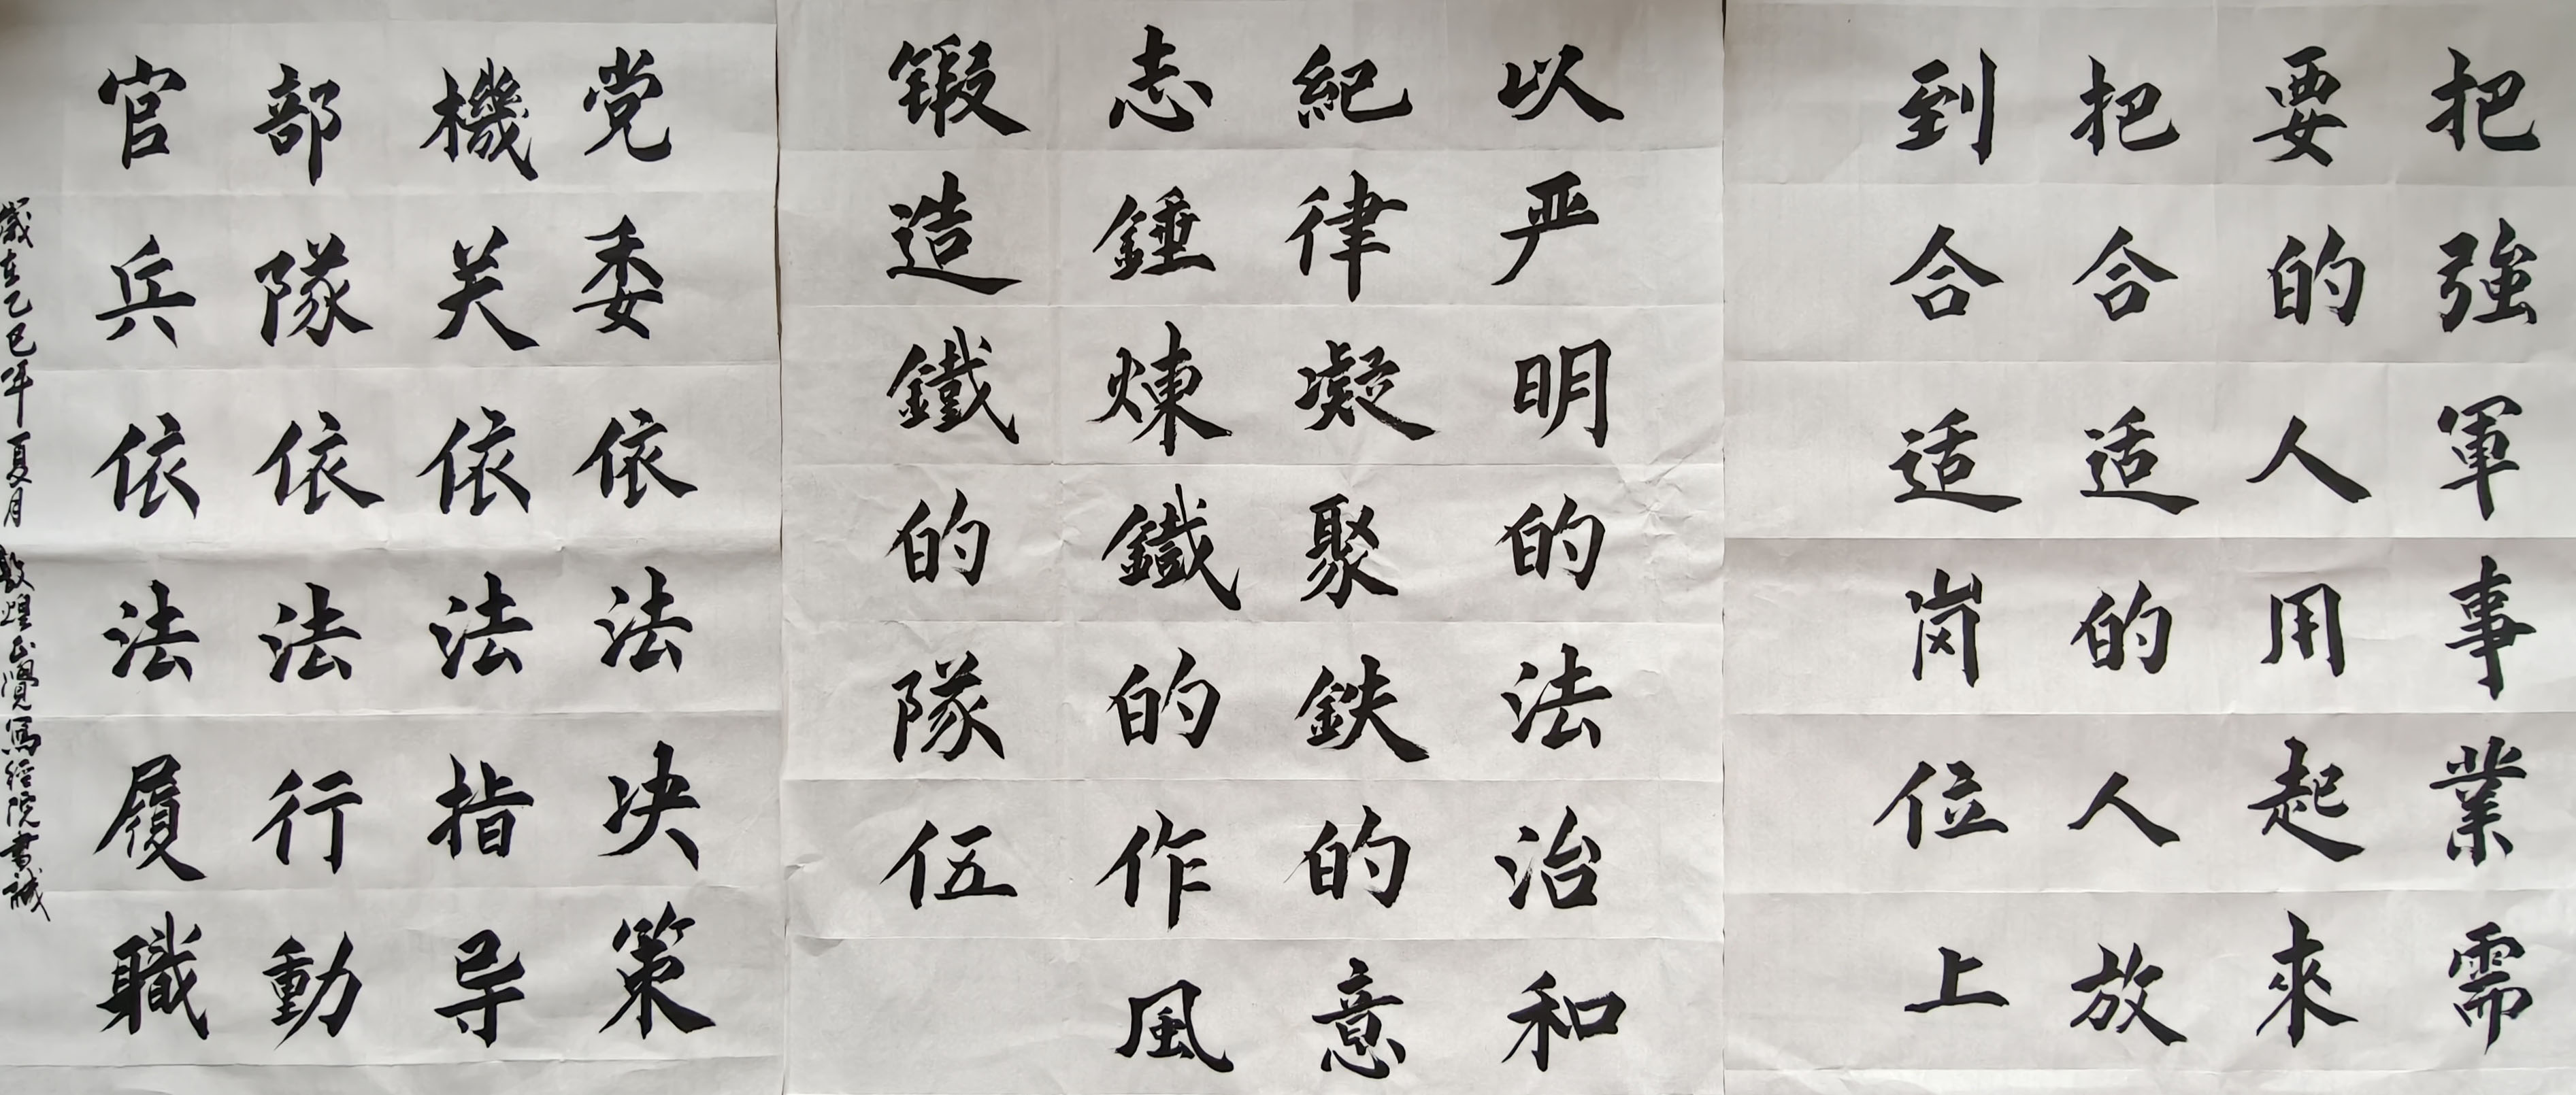 把強軍事業需
要的人用起來
把合适的人放
到合适岗位上
以严明的法治和
紀律凝聚鉄的意
志錘煉鐵的作風
锻造鐵的隊伍
党委依法决策
機关依法指导
部隊依法行動
官兵依法履職
歲在乙巳年夏月 敦煌正覺寫經院書誠